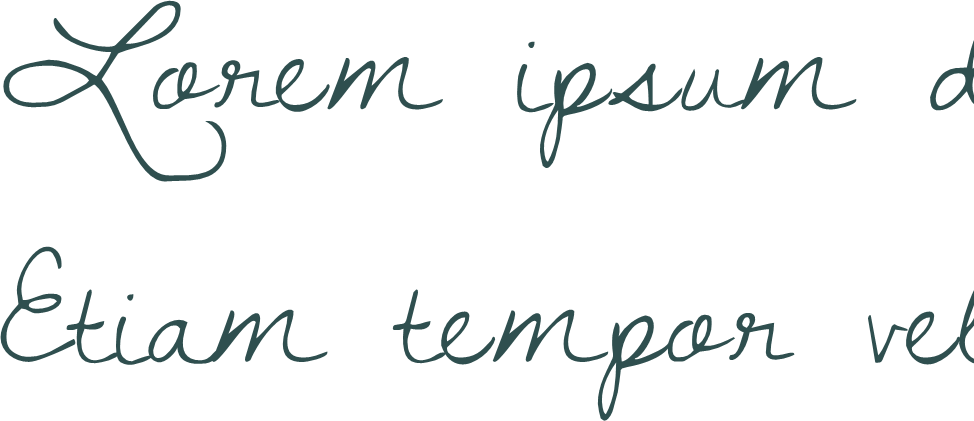 Lorem ipsum d
Etiam tempor vel